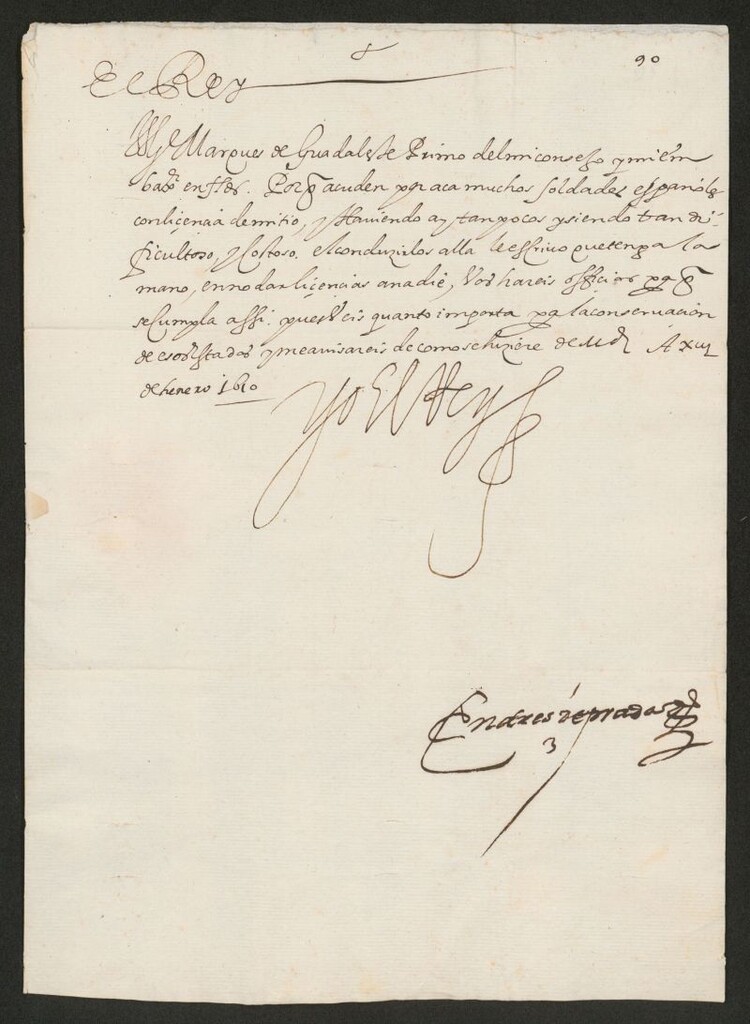 90
El Rey
Marques de Guadaleste Primo del mi consejo y mi em
bax.or en fl.es. Por q acuden por aca muchos soldados españoles
con licencia de mi tio, y Haviendo ay tan pocos y siendo tan di-
ficultoso, y Costoso. el conduzirlos alla le escrivo que tenga la
mano, en no dar licencias a nadie, Vos hareis officios pa q
se Cumpla assi. pues veis quanto importa pa la conservacion
de esos estados y me avisareis de como se hiziere de M.d A xvi
de henero 1610
Yo El Rey
Andres de prada
3